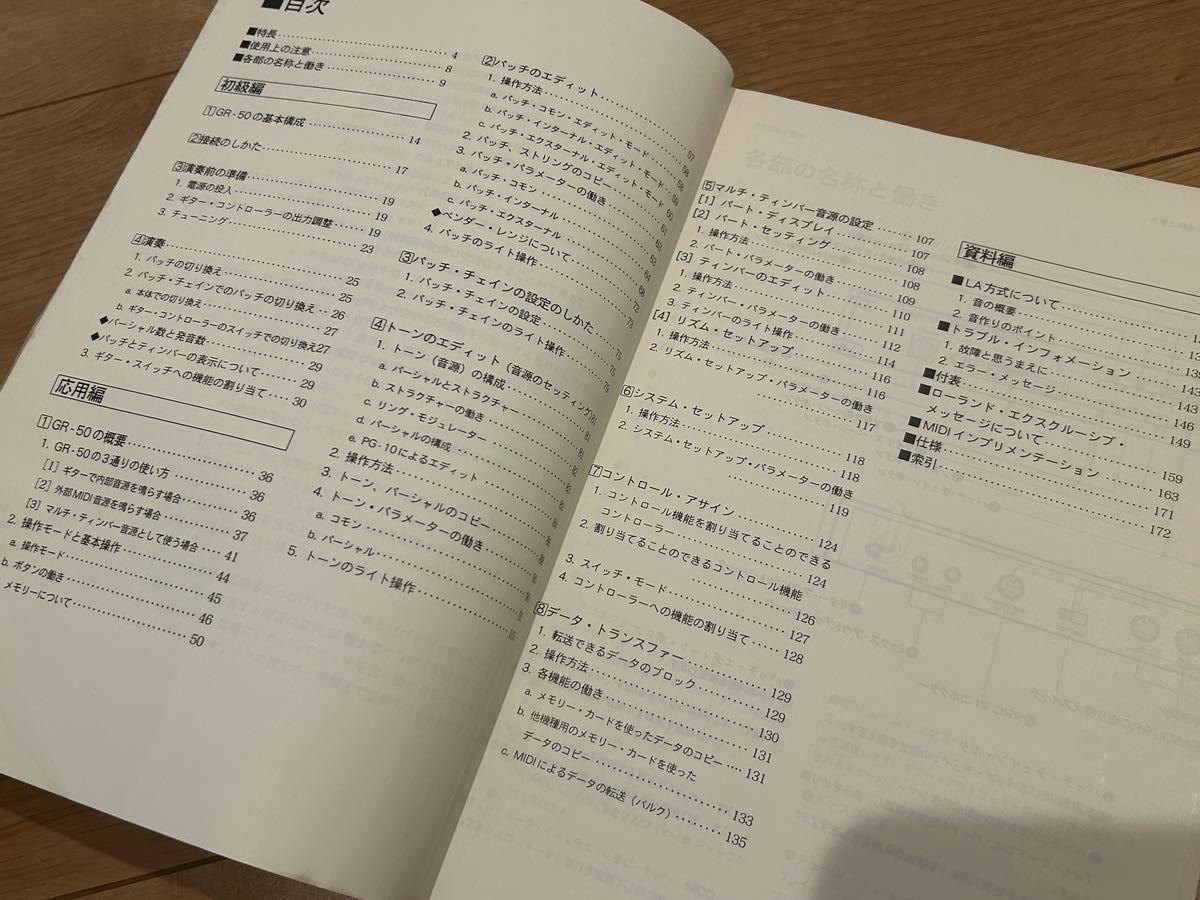 ■目次
■特長 4
■使用上の注意 8
■各部の名称と働き 9
初級編
1 GR-50の基本構成 14
2 接続のしかた 17
3 演奏前の準備 19
1. 電源の投入 19
2. ギター・コントローラーの出力調整 19
3. チューニング 23
4 演奏 25
1. パッチの切り換え 25
2. パッチ・チェインでのパッチの切り換え 26
a. 本体での切り換え 27
b. ギター・コントローラーのスイッチでの切り換え27
◆パーシャル数と発音数 29
◆パッチとティンバーの表示について 29
3. ギター・スイッチへの機能の割り当て 30
応用編
1 GR-50の概要 36
1. GR-50の3通りの使い方 36
[1] ギターで内部音源を鳴らす場合 36
[2] 外部MIDI音源を鳴らす場合 37
[3] マルチ・ティンバー音源として使う場合 41
2. 操作モードと基本操作 44
a. 操作モード 45
b. ボタンの働き 46
メモリーについて 50
2 パッチのエディット
1. 操作方法 57
a. パッチ・コモン・エディット・モード 58
b. パッチ・インターナル・エディット・モード 58
c. パッチ・エクスターナル・エディット・モード 59
2. パッチ、ストリングのコピー 60
3. パッチ・パラメーターの働き 61
a. パッチ・コモン
b. パッチ・インターナル
c. パッチ・エクスターナル
◆ベンダー・レンジについて
4. パッチのライト操作
3 パッチ・チェインの設定のしかた
1. パッチ・チェインの設定
2. パッチ・チェインのライト操作
4 トーンのエディット（音源のセッティング）
1. トーン（音源）の構成
a. パーシャルとストラクチャー
b. ストラクチャーの働き
c. リング・モジュレーター
d. パーシャルの構成
e. PG-10によるエディット
2. 操作方法
3. トーン、パーシャルのコピー
4. トーン・パラメーターの働き
a. コモン
b. パーシャル
5. トーンのライト操作
5 マルチ・ティンバー音源の設定 107
[1] パート・ディスプレイ 107
[2] パート・セッティング 108
1. 操作方法 108
2. パート・パラメーターの働き 109
[3] ティンバーのエディット 110
1. 操作方法 111
2. ティンバー・パラメーターの働き 112
3. ティンバーのライト操作 114
[4] リズム・セットアップ 116
1. 操作方法 116
2. リズム・セットアップ・パラメーターの働き
117
6 システム・セットアップ 118
1. 操作方法 118
2. システム・セットアップ・パラメーターの働き
119
7 コントロール・アサイン 124
1. コントロール機能を割り当てることのできる
コントローラー 124
2. 割り当てることのできるコントロール機能
126
3. スイッチ・モード 127
4. コントローラーへの機能の割り当て 128
8 データ・トランスファー 129
1. 転送できるデータのブロック 129
2. 操作方法 130
3. 各機能の働き 131
a. メモリー・カードを使ったデータのコピー 131
b. 他機種用のメモリー・カードを使った
データのコピー 133
c. MIDIによるデータの転送（バルク） 135
資料編
■LA方式について
1. 音の概要
2. 音作りのポイント
■トラブル・インフォメーション 143
1. 故障と思うまえに 143
2. エラー・メッセージ 146
■付表 149
■ローランド・エクスクルーシブ・
メッセージについて 159
■MIDIインプリメンテーション 163
■仕様 171
■索引 172